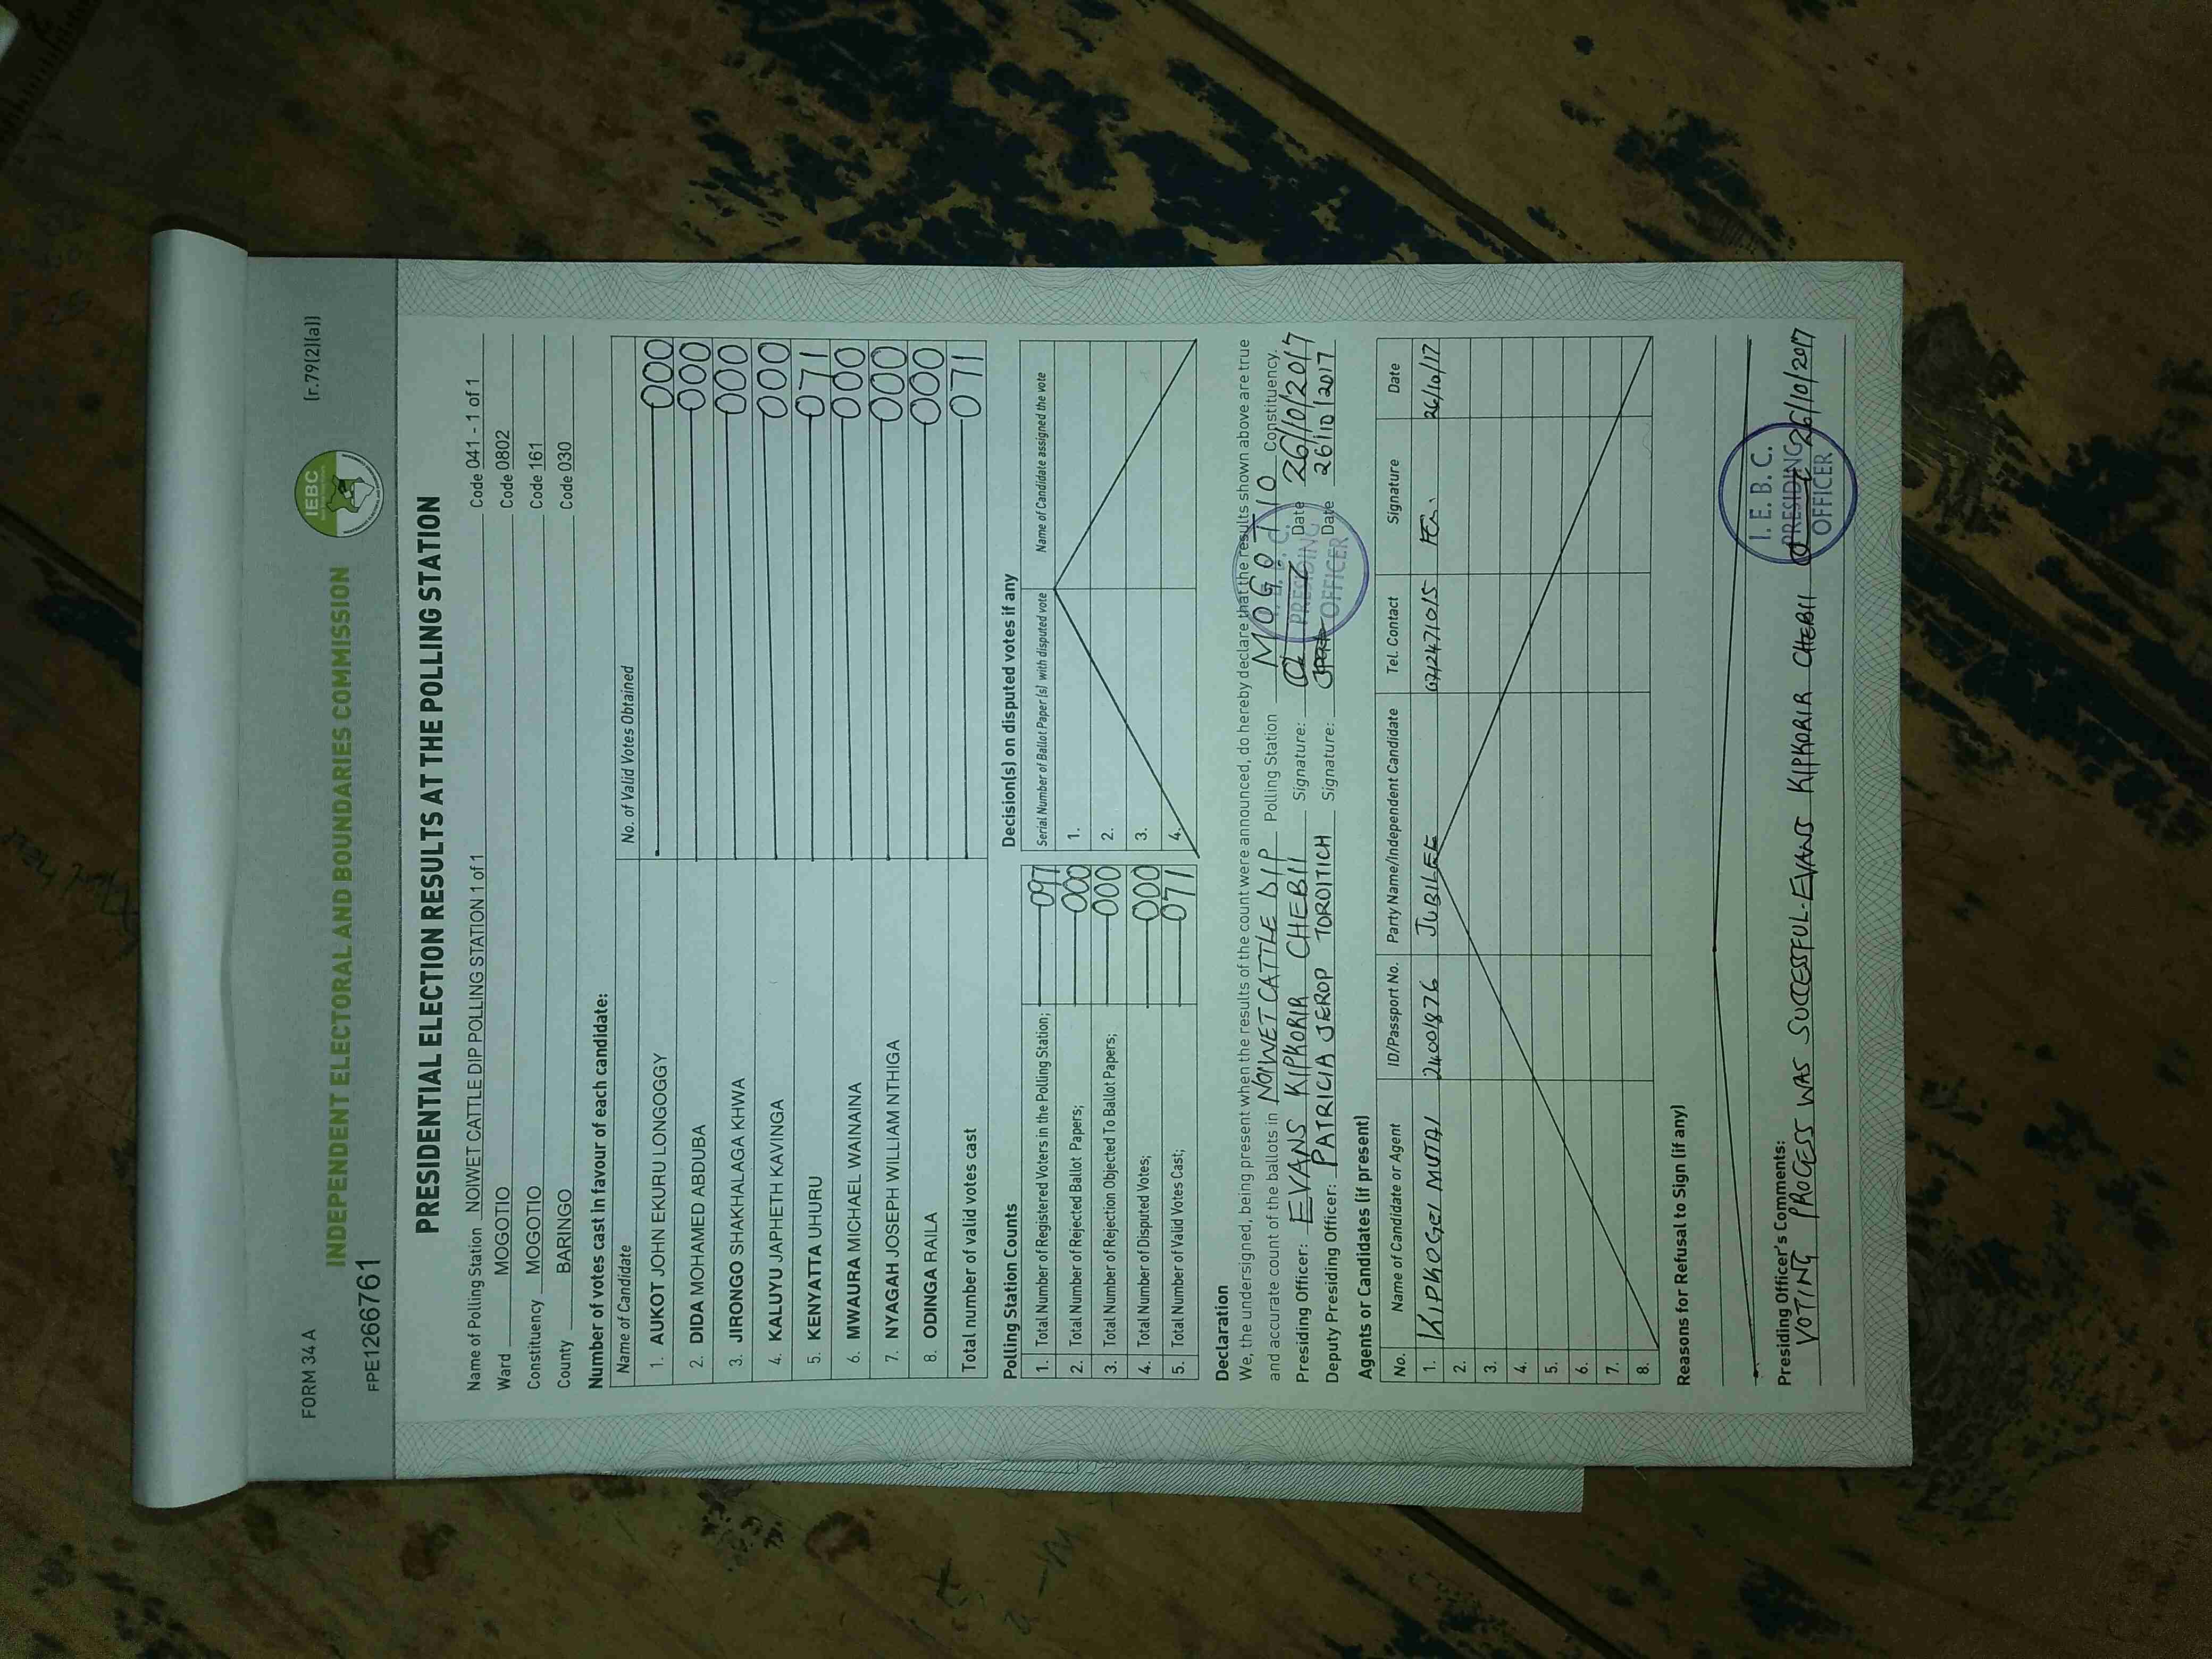 FORM 34 A
[r.79(2)(a)]
IEBC
INDEPENDENT ELECTORAL AND BOUNDARIES COMMISSION
FPE1266761
PRESIDENTIAL ELECTION RESULTS AT THE POLLING STATION
Name of Polling Station NOIWET CATTLE DIP POLLING STATION 1 of 1 Code 041 - 1 of 1
Ward MOGOTIO Code 0802
Constituency MOGOTIO Code 161
County BARINGO Code 030
Number of votes cast in favour of each candidate:
Name of Candidate No. of Valid Votes Obtained
1. AUKOT JOHN EKURU LONGOGGY 000
2. DIDA MOHAMED ABDUBA 000
3. JIRONGO SHAKHALAGA KHWA 000
4. KALUYU JAPHETH KAVINGA 000
5. KENYATTA UHURU 071
6. MWAURA MICHAEL WAINAINA 000
7. NYAGAH JOSEPH WILLIAM NTHIGA 000
8. ODINGA RAILA 000
Total number of valid votes cast 071
Polling Station Counts
1. Total Number of Registered Voters in the Polling Station; 097
2. Total Number of Rejected Ballot Papers; 000
3. Total Number of Rejection Objected To Ballot Papers; 000
4. Total Number of Disputed Votes; 000
5. Total Number of Valid Votes Cast; 071
Decision(s) on disputed votes if any
Serial Number of Ballot Paper (s) with disputed vote Name of Candidate assigned the vote
1.
2.
3.
4.
Declaration
We, the undersigned, being present when the results of the count were announced, do hereby declare that the results shown above are true
and accurate count of the ballots in NOIWET CATTLE DIP Polling Station MOGOTIO Constituency.
Presiding Officer: EVANS KIPKORIR CHEBII Signature: Date 26/10/2017
Deputy Presiding Officer: PATRICIA JEROP TOROITICH Signature: Date 26/10/2017
I. E. B. C.
PRESIDING
OFFICER
Agents or Candidates (if present)
No. Name of Candidate or Agent ID/Passport No. Party Name/Independent Candidate Tel. Contact Signature Date
1. KIPKOGEI MUTAI 24001876 JUBILEE 072471015 26/10/17
2.
3.
4.
5.
6.
7.
8.
Reasons for Refusal to Sign (if any)
Presiding Officer's Comments:
VOTING PROCESS WAS SUCCESSFUL-EVANS KIPKORIR CHEBII 26/10/2017
I. E. B. C.
PRESIDING
OFFICER